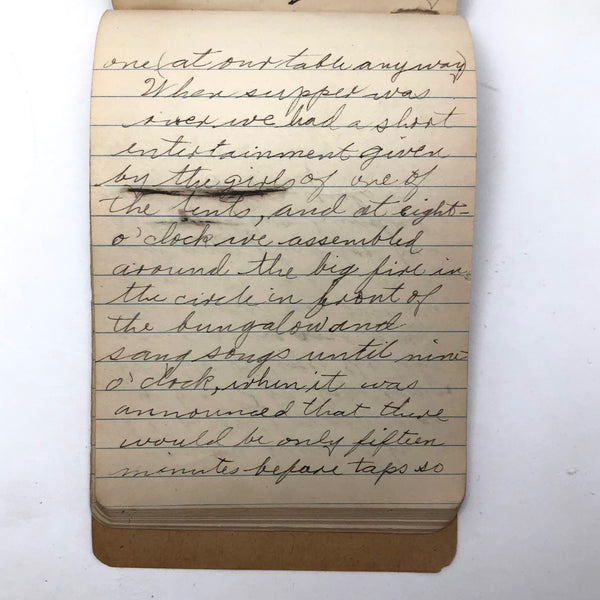 one (at our table anyway)
When supper was
over we had a short
entertainment given
by the girls of one of
the tents, and at eight-
o'clock we assembled
around the big fire in
the circle in front of
the bungalow and
sang songs until nine
o'clock, when it was
announced that there
would be only fifteen
minutes before taps so